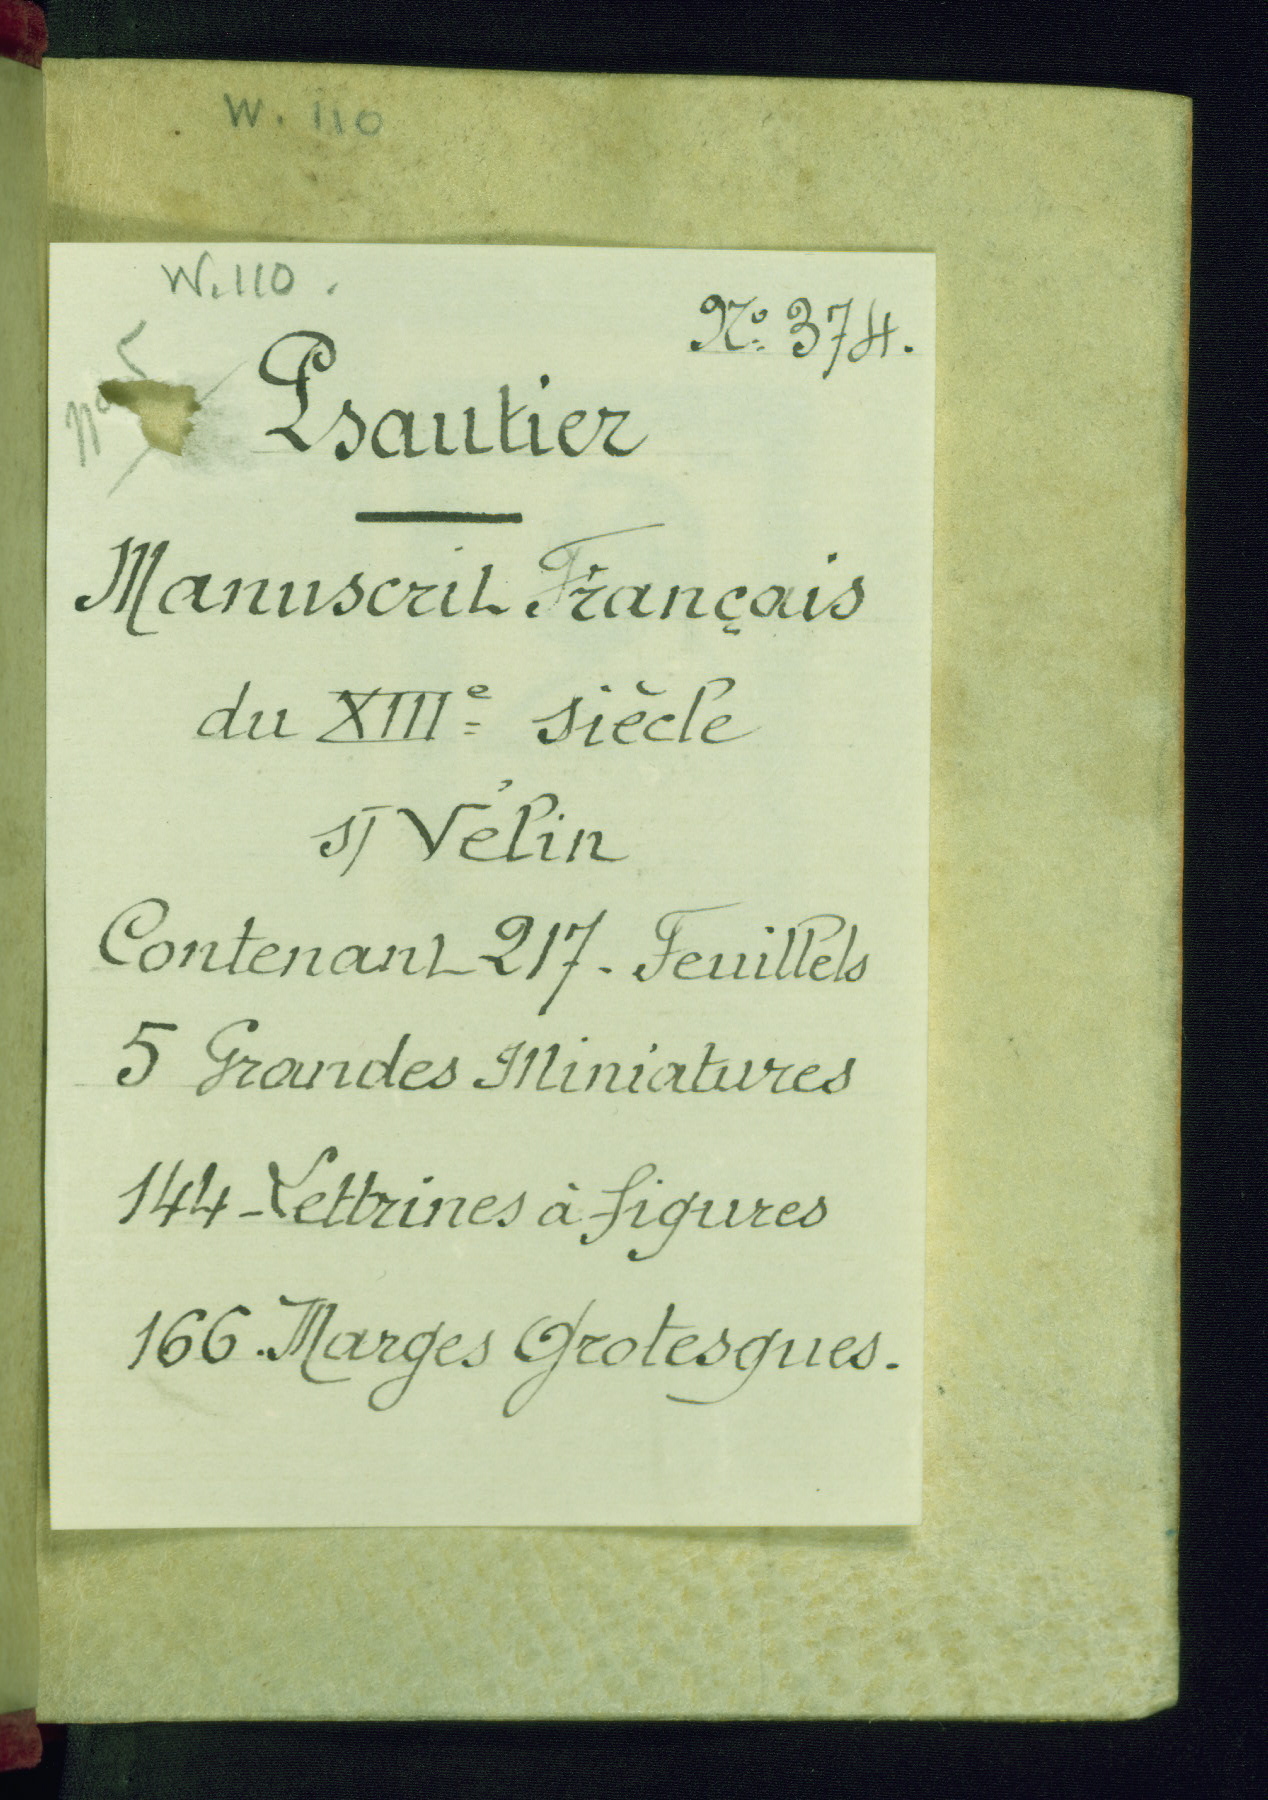 W. 110
W. 110.
Nº 374.
nº 5
Psautier
Manuscrit Français
du XIIIe siècle
s/ Vélin
Contenant 217. Feuillets
5 Grandes Miniatures
144 - Lettrines à figures
166. Marges Grotesques.